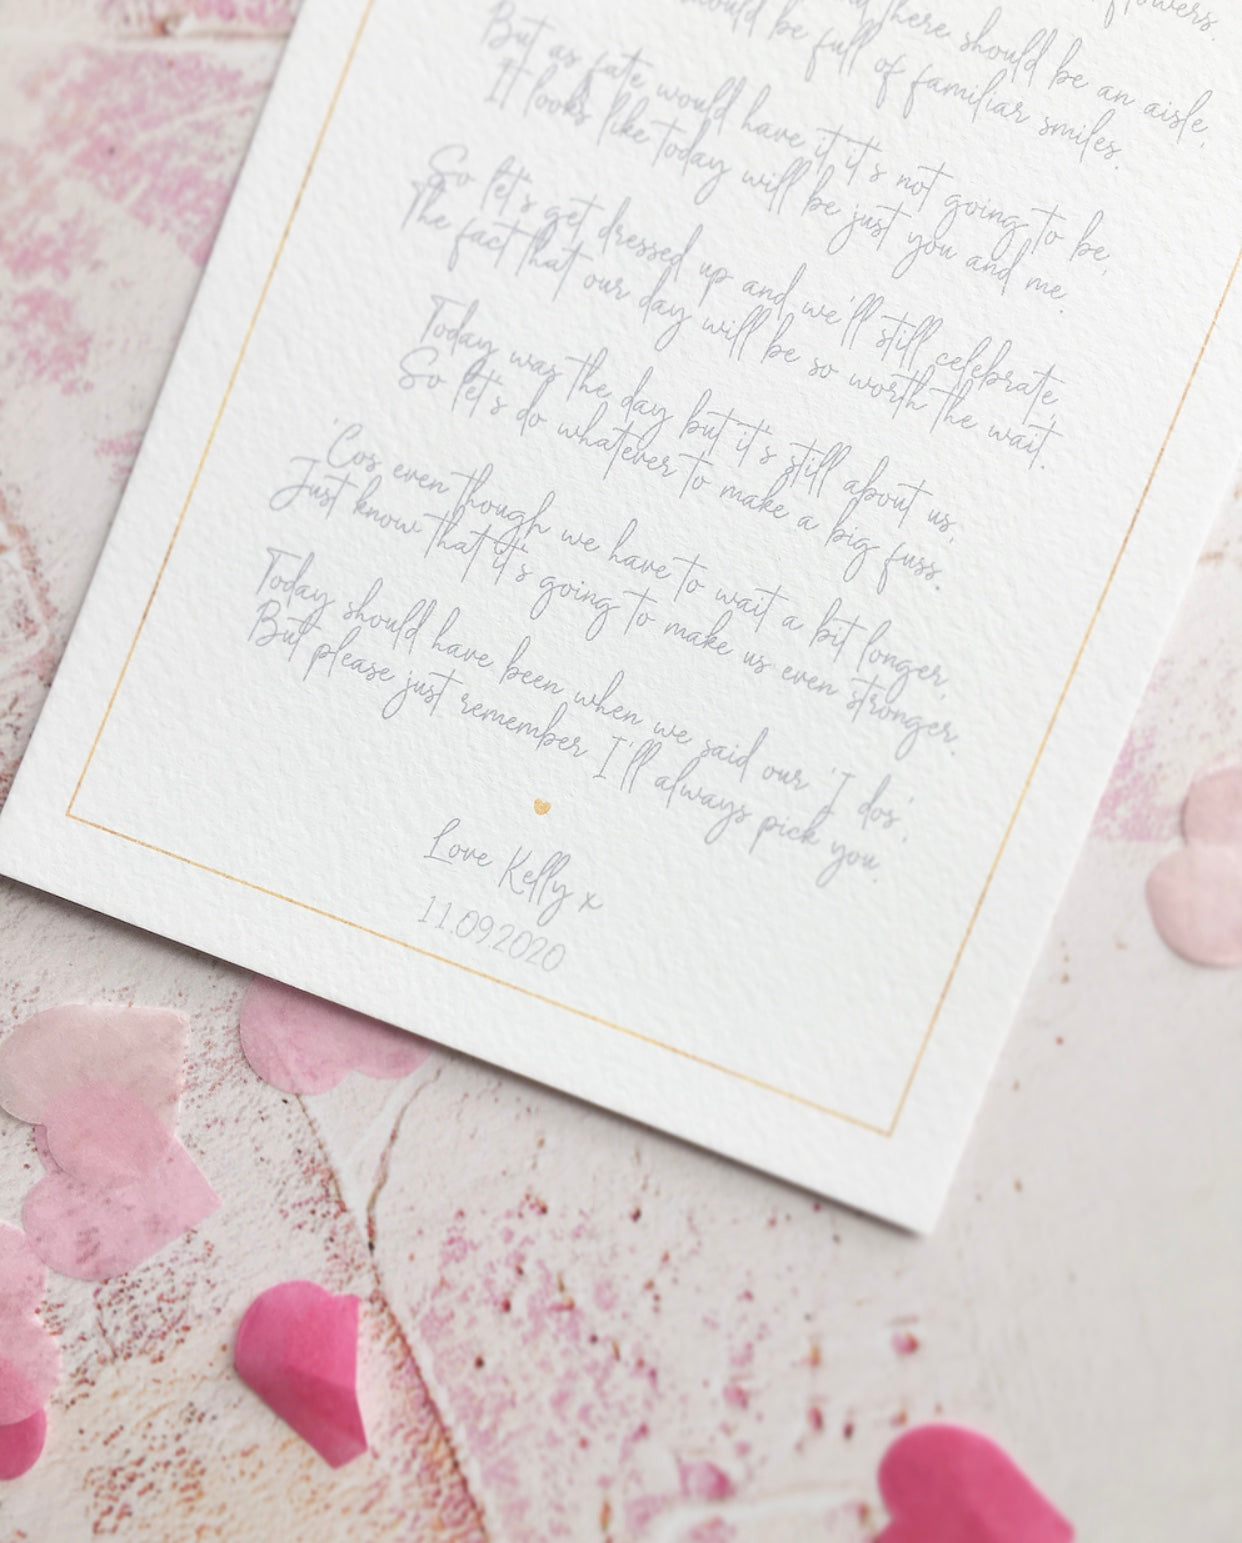 flowers.
there should be an aisle,
should be full of familiar smiles.
But as fate would have it it's not going to be,
It looks like today will be just you and me.
So let's get dressed up and we'll still celebrate,
The fact that our day will be so worth the wait.
Today was the day but it's still about us,
So let's do whatever to make a big fuss.
'Cos even though we have to wait a bit longer,
Just know that it's going to make us even stronger.
Today should have been when we said our 'I dos',
But please just remember I'll always pick you.
Love Kelly x
11.09.2020